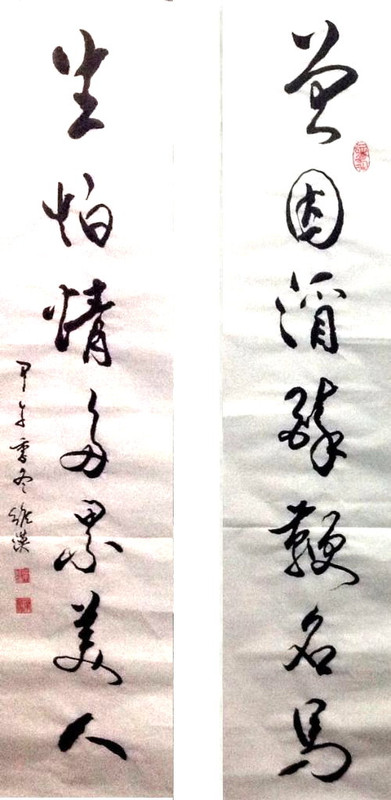 曾因酒醉鞭名馬
生怕情多累美人
甲午季冬